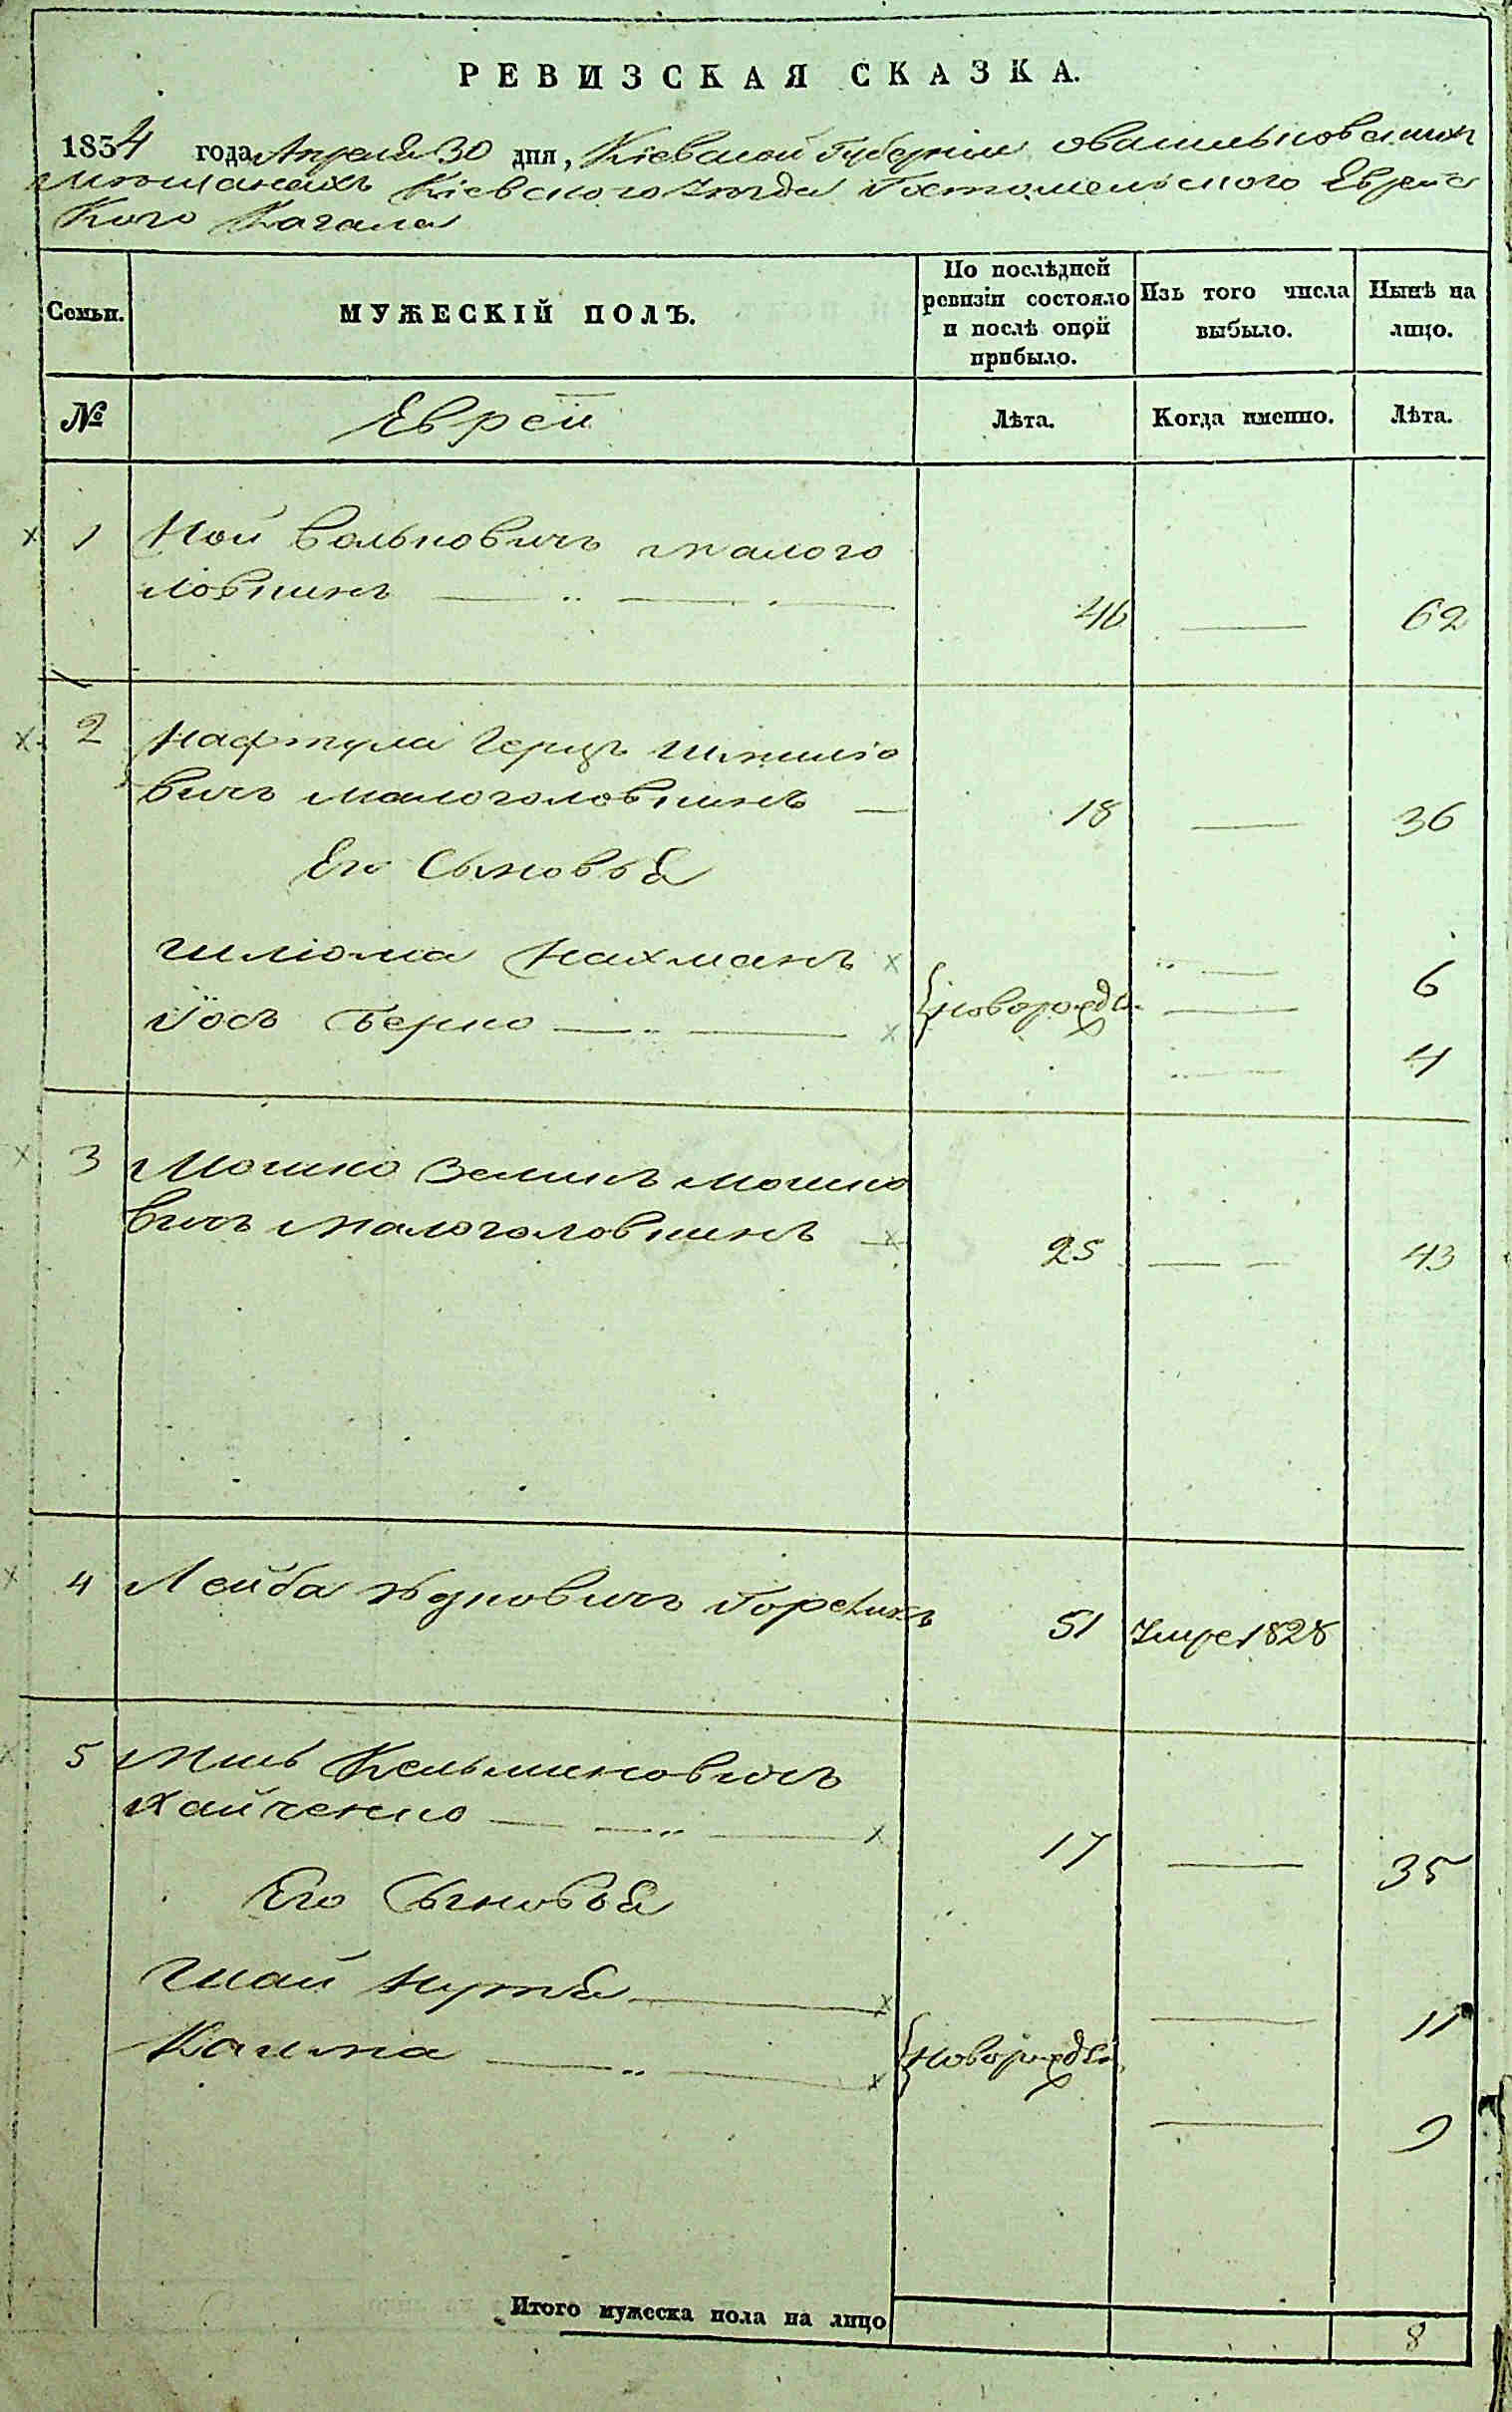 РЕВИЗСКАЯ СКАЗКА.
1834 года Апреля 30 дня, Кіевской Губерніи о васильковских
мѣщанахъ Кіевского уѣзда Гостомельского Еврейс
кого Кагала
Семьи.
МУЖЕСКІЙ ПОЛЪ.
По послѣдней ревизіи состояло и послѣ оной прибыло.
Изъ того числа выбыло.
Нынѣ на лицо.
№
Евреи
Лѣта.
Когда именно.
Лѣта.
1 Ной Вольковичъ малого
ловкинъ 46 62
2 Нафтула Герцъ
вичъ малоголовкинъ 18 36
Его Сыновья
Шлюома Нахманъ новорожд 6
Іосъ Берко 4
3 Мошко Зеликъ мошко
вичъ малоголовкинъ 25 43
4 Лейба Гореликъ 51 умре 1828
5 Кельмановичъ
Хайченко 17 35
Его Сыновья
Шай Нутя новорожд 11
Калма 9
Итого мужеска пола на лицо 8